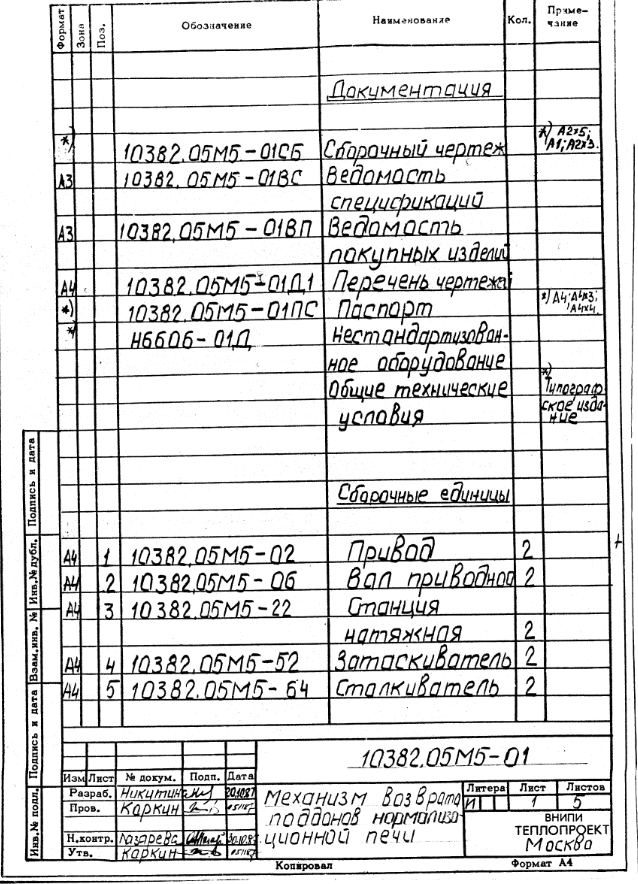 Формат Зона Поз. Обозначение Наименование Кол. Приме-
чание
Документация
*) 10382.05М5-01СБ Сборочный чертеж *) А2х5;
А1; А2х3.
А3 10382.05М5-01ВС Ведомость
спецификаций
А3 10382.05М5-01ВП Ведомость
покупных изделий
А4 10382.05М5-01Д1 Перечень чертежей
*) 10382.05М5-01ПС Паспорт *) А4; А4х3;
А4х4.
*) Н6606-01Д Нестандартизован-
ное оборудование
Общие технические *) Типограф-
условия ское изда-
ние
Сборочные единицы
А4 1 10382.05М5-02 Привод 2
А4 2 10382.05М5-06 Вал приводной 2
А4 3 10382.05М5-22 Станция
натяжная 2
А4 4 10382.05М5-52 Затаскиватель 2
А4 5 10382.05М5-64 Сталкиватель 2
Инв.№ подл. Подпись и дата Взам.инв. № Инв.№ дубл. Подпись и дата
10382.05М5-01
Изм Лист № докум. Подп. Дата
Разраб. Никитина
Пров. Каркин
Н.контр. Лазарева
Утв. Каркин
Механизм возврата
поддонов нормализа-
ционной печи
Литера Лист Листов
И 1 5
ВНИПИ
ТЕПЛОПРОЕКТ
Москва
Копировал Формат А4